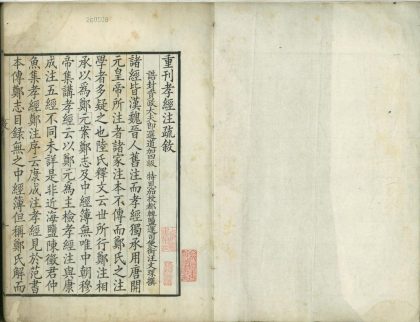 重刊孝經注疏敘
誥封資政大夫即選道加四級 特恩給授教鹽運司使銜汪文臺撰
諸經皆漢魏晉人舊注而孝經獨承用唐開
元皇帝所注者諸家注本不傳而鄭氏之注
學者多疑之也陸氏釋文云世所行鄭注相
承以為鄭元案鄭志及中經簿無唯中朝穆
帝集講孝經云以鄭元為主檢孝經注與康
成注五經不同未詳是非近海鹽陳徵君仲
魚集孝經鄭注序云康成注孝經見於范書
本傳鄭志目錄無之中經簿但稱鄭氏解而